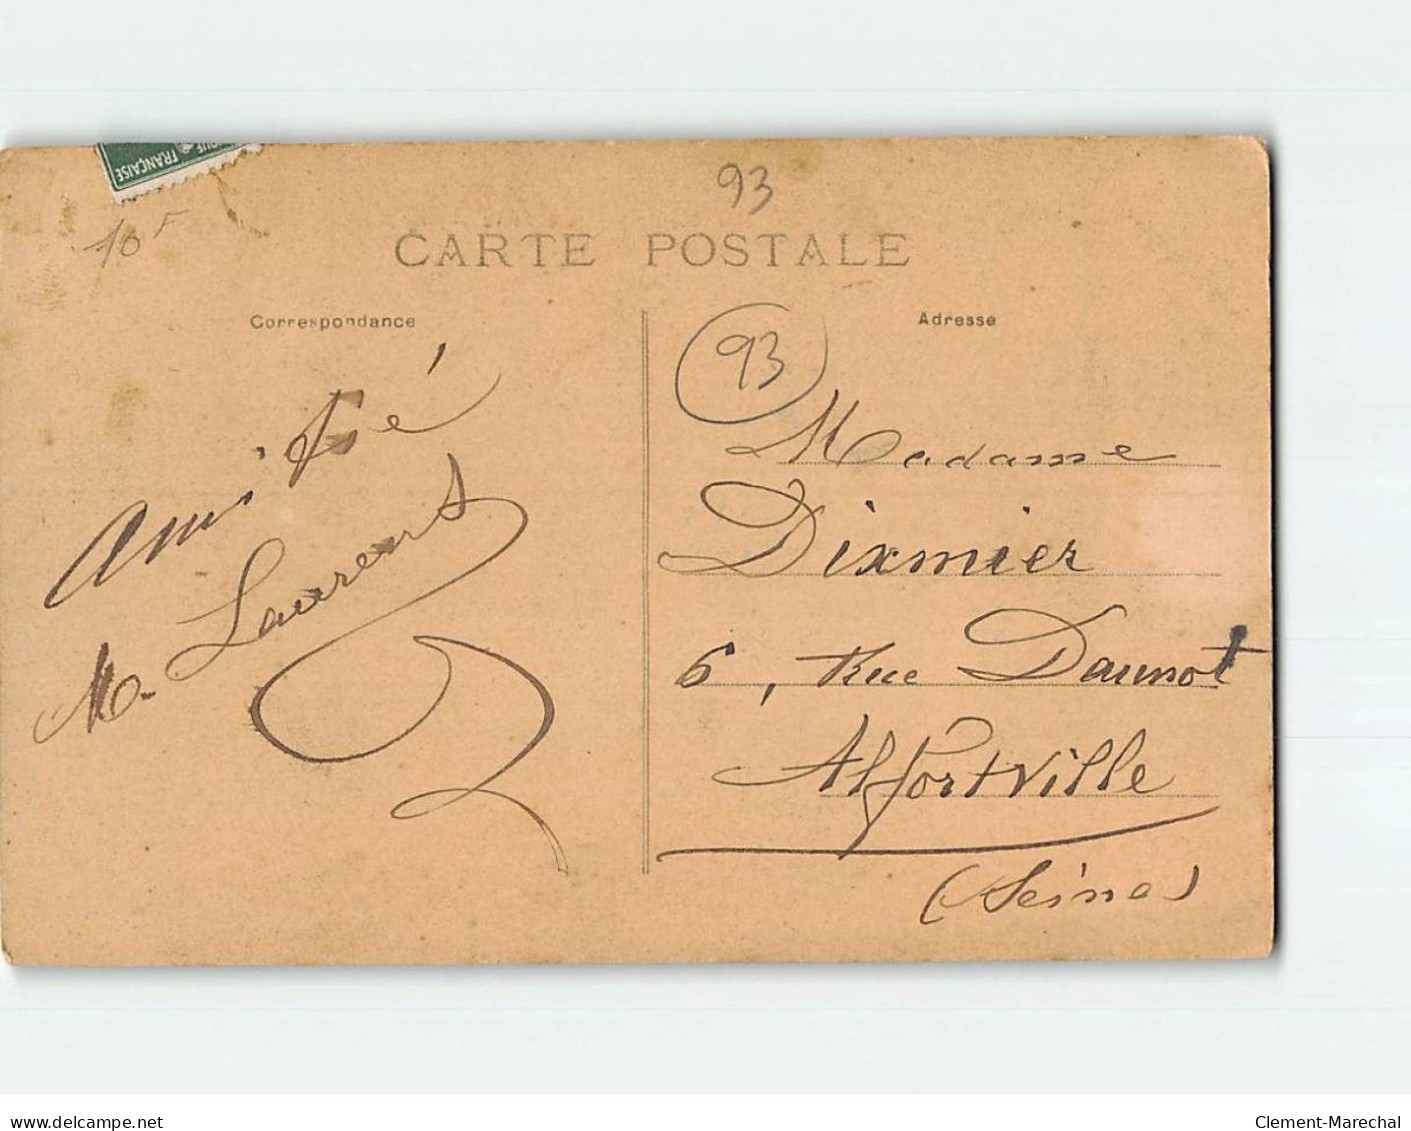 QUE FRANÇAISE
93
10F
CARTE POSTALE
Correspondance
Adresse
93
Amitié
M. Laurens
Madame
Dixmier
6, Rue Daunot
Alfortville
(Seine)
www.delcampe.net
Clement-Marechal